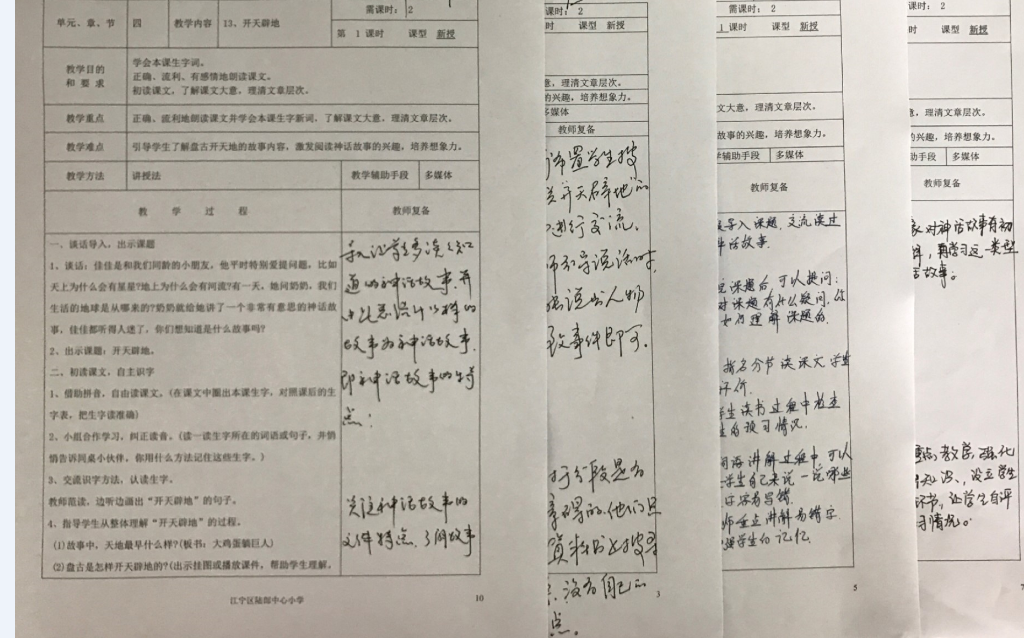 单元、章、节 四 教学内容 13、开天辟地
需课时：2
第 1 课时 课型 新授
教学目的
和 要 求
学会本课生字词。
正确、流利、有感情地朗读课文。
初读课文，了解课文大意，理清文章层次。
教学重点 正确、流利地朗读课文并学会本课生字新词，了解课文大意，理清文章层次。
教学难点 引导学生了解盘古开天地的故事内容，激发阅读神话故事的兴趣，培养想象力。
教学方法 讲授法 教学辅助手段 多媒体
教 学 过 程 教师复备
一、谈话导入，出示课题
1、谈话：佳佳是和我们同龄的小朋友，他平时特别爱提问题，比如
天上为什么会有星星?地上为什么会有河流?有一天，她问奶奶，我们
生活的地球是从哪来的?奶奶就给她讲了一个非常有意思的神话故
事，佳佳都听得入迷了，你们想知道是什么故事吗?
2、出示课题：开天辟地。
二、初读课文，自主识字
1、借助拼音，自由读课文。(在课文中圈出本课生字，对照课后的生
字表，把生字读准确)
2、小组合作学习，纠正读音。(读一读生字所在的词语或句子，并悄
悄告诉同桌小伙伴，你用什么方法记住这些生字。)
3、交流识字方法，认读生字。
教师范读，边听边画出“开天辟地”的句子。
4、指导学生从整体理解“开天辟地”的过程。
(1)故事中，天地最早什么样?(板书：大鸡蛋躺巨人)
(2)盘古是怎样开天辟地的?(出示挂图或播放课件，帮助学生理解，
导入让学生多谈谈知
道的神话故事，并
的
故事为神话故事，
即神话故事的特
点；
关注神话故事的
文体特点，了解故事
江宁区陆郎中心小学 16
课时：2
时 课型 新授
意，理清文章层次。
的兴趣，培养想象力。
多媒体
教师复备
布置学生搜
开天辟地的
进行交流、
师引导说话时，
说出人物
事件即可。
于分段是有
的，他们只
资料书上搜寻
没有自己的
点。
3
需课时：2
1 课时 课型 新授
文大意，理清文章层次。
故事的兴趣，培养想象力。
学辅助手段 多媒体
教师复备
导入课题，交流读过
神话故事．
课题后可以提问：
对课题有什么疑问，你
如何理解课题的．
指名分节读课文 学生
评价．
学生读书过程中检查
生的预习情况．
词语讲解过程中 可以
学生自己来说一说哪些
字容易错．
师重点讲解易错字
学生的记忆．
5
课时：2
时 课型 新授
意，理清文章层次。
故事的兴趣，培养想象力。
助手段 多媒体
教师复备
对神话故事有初
，再学习这一类型
故事。
教学，强化
知识，设立学生
环节，让学生自评
习情况。
7